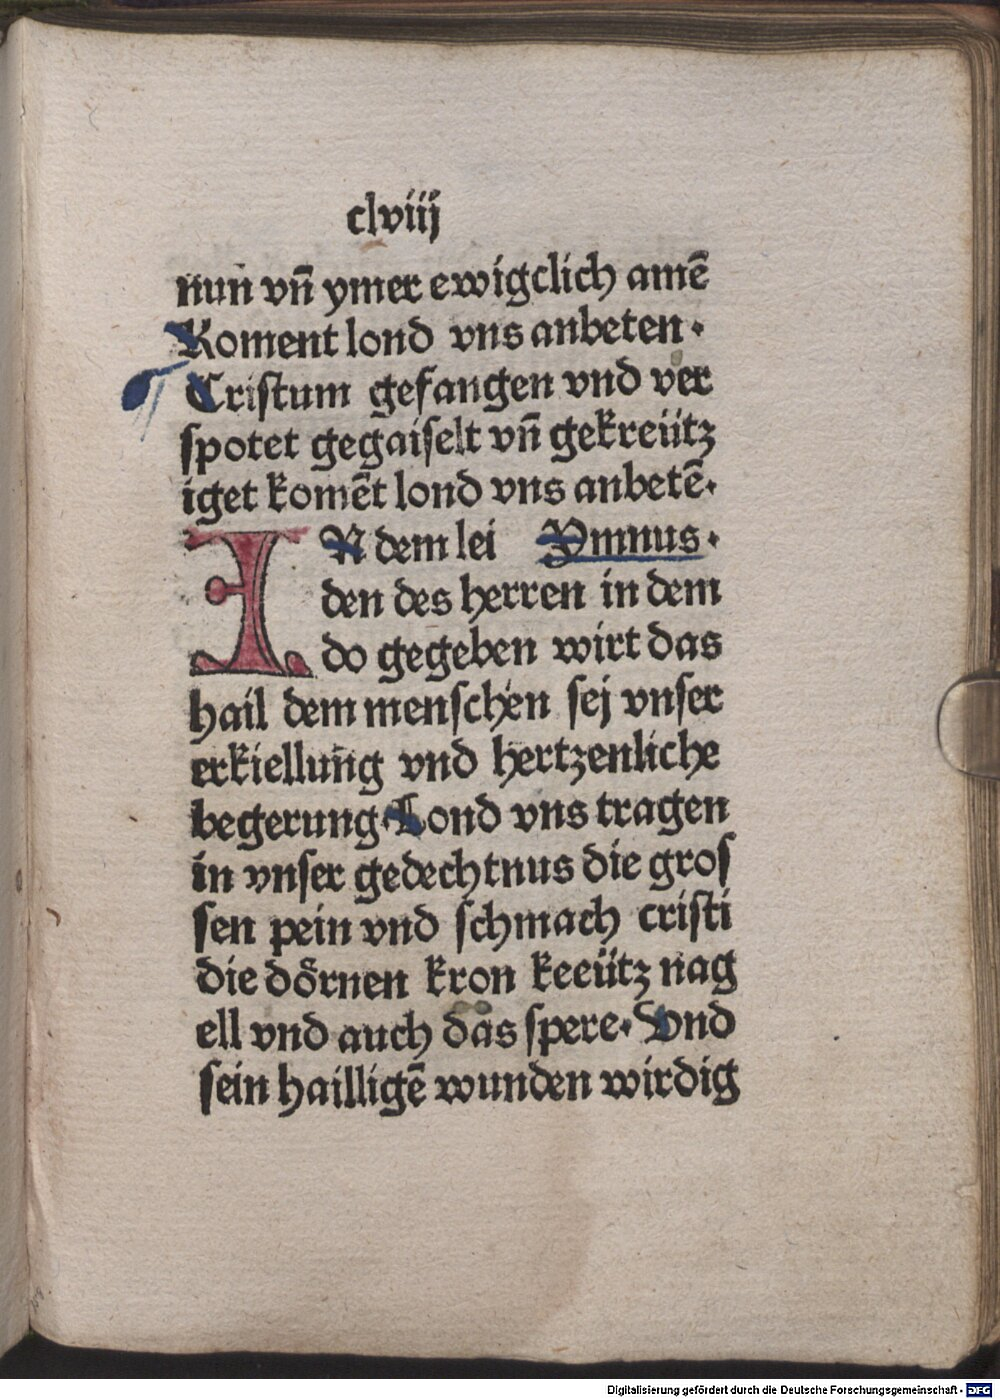 clviij
nun vn̄ ymer ewigclich amē
Koment lond vns anbeten·
Cristum gefangen vnd ver
spotet gegaiselt vn̄ gekreütz
iget komēt lond vns anbetē·
IN dem lei Ymnus·
den des herren in dem
do gegeben wirt das
hail dem menschen sej vnser
erkiellung vnd hertzenliche
begerung·Lond vns tragen
in vnser gedechtnus die gros
sen pein vnd schmach cristi
die dörnen kron keeütz nag
ell vnd auch das spere·Vnd
sein hailligē wunden wirdig
Digitalisierung gefördert durch die Deutsche Forschungsgemeinschaft - DFG